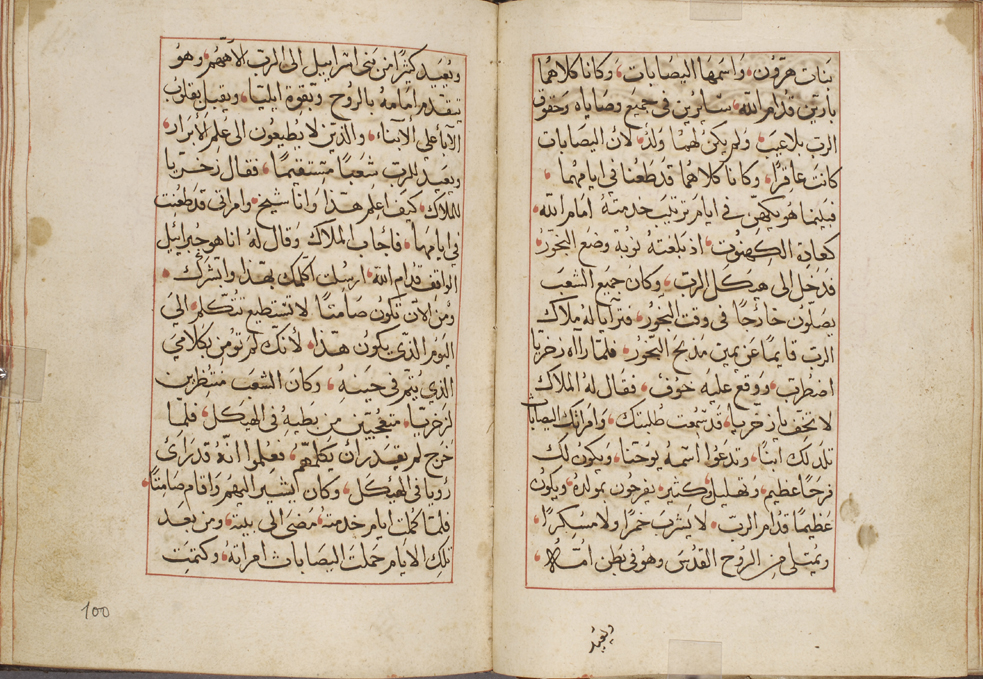 بنات هرون، واسمها اليصابات، وكانا كلاهما
بارين قدام الله، سايرين في جميع وصاياه وحقوق
الرب بلا عيب، ولم يكن لهما ولد، لان اليصابات
كانت عاقرًا، وكانا كلاهما قد طعنا في ايامهما،
فبينما هو يكهن في ايام ترتيب خدمته امام الله،
كعادة الكهنوت، اذ بلغته نوبة وضع البخور،
فدخل الى هيكل الرب، وكان جميع الشعب
يصلون خارجًا في وقت البخور، فترايا له ملاك
الرب قايمًا عن يمين مذبح البخور، فلما رآه زخريا
اضطرب، ووقع عليه خوف، فقال له الملاك
لا تخف يا زخريا، قد سمعت طلبتك، وامراتك اليصابات
تلد لك ابنًا، وتدعوا اسمه يوحنا، ويكون لك
فرحًا عظيم، وتهليل، وكثير يفرحون بمولده، ويكون
عظيمًا قدام الرب، لا يشرب خمرًا ولا مسكرًا،
ويمتلى من الروح القدس وهو في بطن امه،
ويعيد
ويعيد كثيرًا من بني اسراييل الى الرب الاههم، وهو
يتقدم امامه بالروح وبقوة ايليا، ويقبل بقلوب
الآبا على الابناء، والذين لا يطيعون الى علم الابرار،
ويعد للرب شعبًا مستقيمًا، فقال زخريا
للملاك، كيف اعلم هذا وانا شيخ، وامراتي قد طعنت
في ايامها، فاجاب الملاك وقال له انا هو جبراييل
الواقف قدام الله، ارسلت اكلمك بهذا وابشرك،
ومن الآن تكون صامتًا لا تستطيع تتكلم، الى
اليوم الذي يكون هذا، لانك لم تومن بكلامي
الذي يتم في حينه، وكان الشعب منتظرين
لزخريا، متعجبين من بطيه في الهيكل، فلما
خرج لم يقدر ان يكلمهم، فعلموا انه قد راى
رويا في الهيكل، وكان يشير اليهم، واقام صامتًا،
فلما كملت ايام خدمته، مضى الى بيته، ومن بعد
تلك الايام حملت اليصابات امراته، وكتمت
100